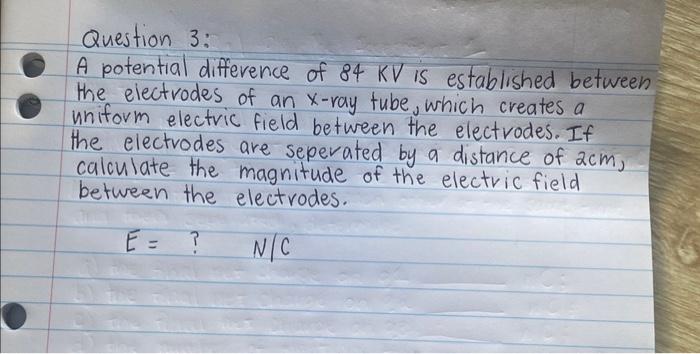 Question 3:
A potential difference of 84 KV is established between
the electrodes of an x-ray tube, which creates a
uniform electric field between the electrodes. If
the electrodes are seperated by a distance of 2cm,
calculate the magnitude of the electric field
between the electrodes.
E = ? N/C